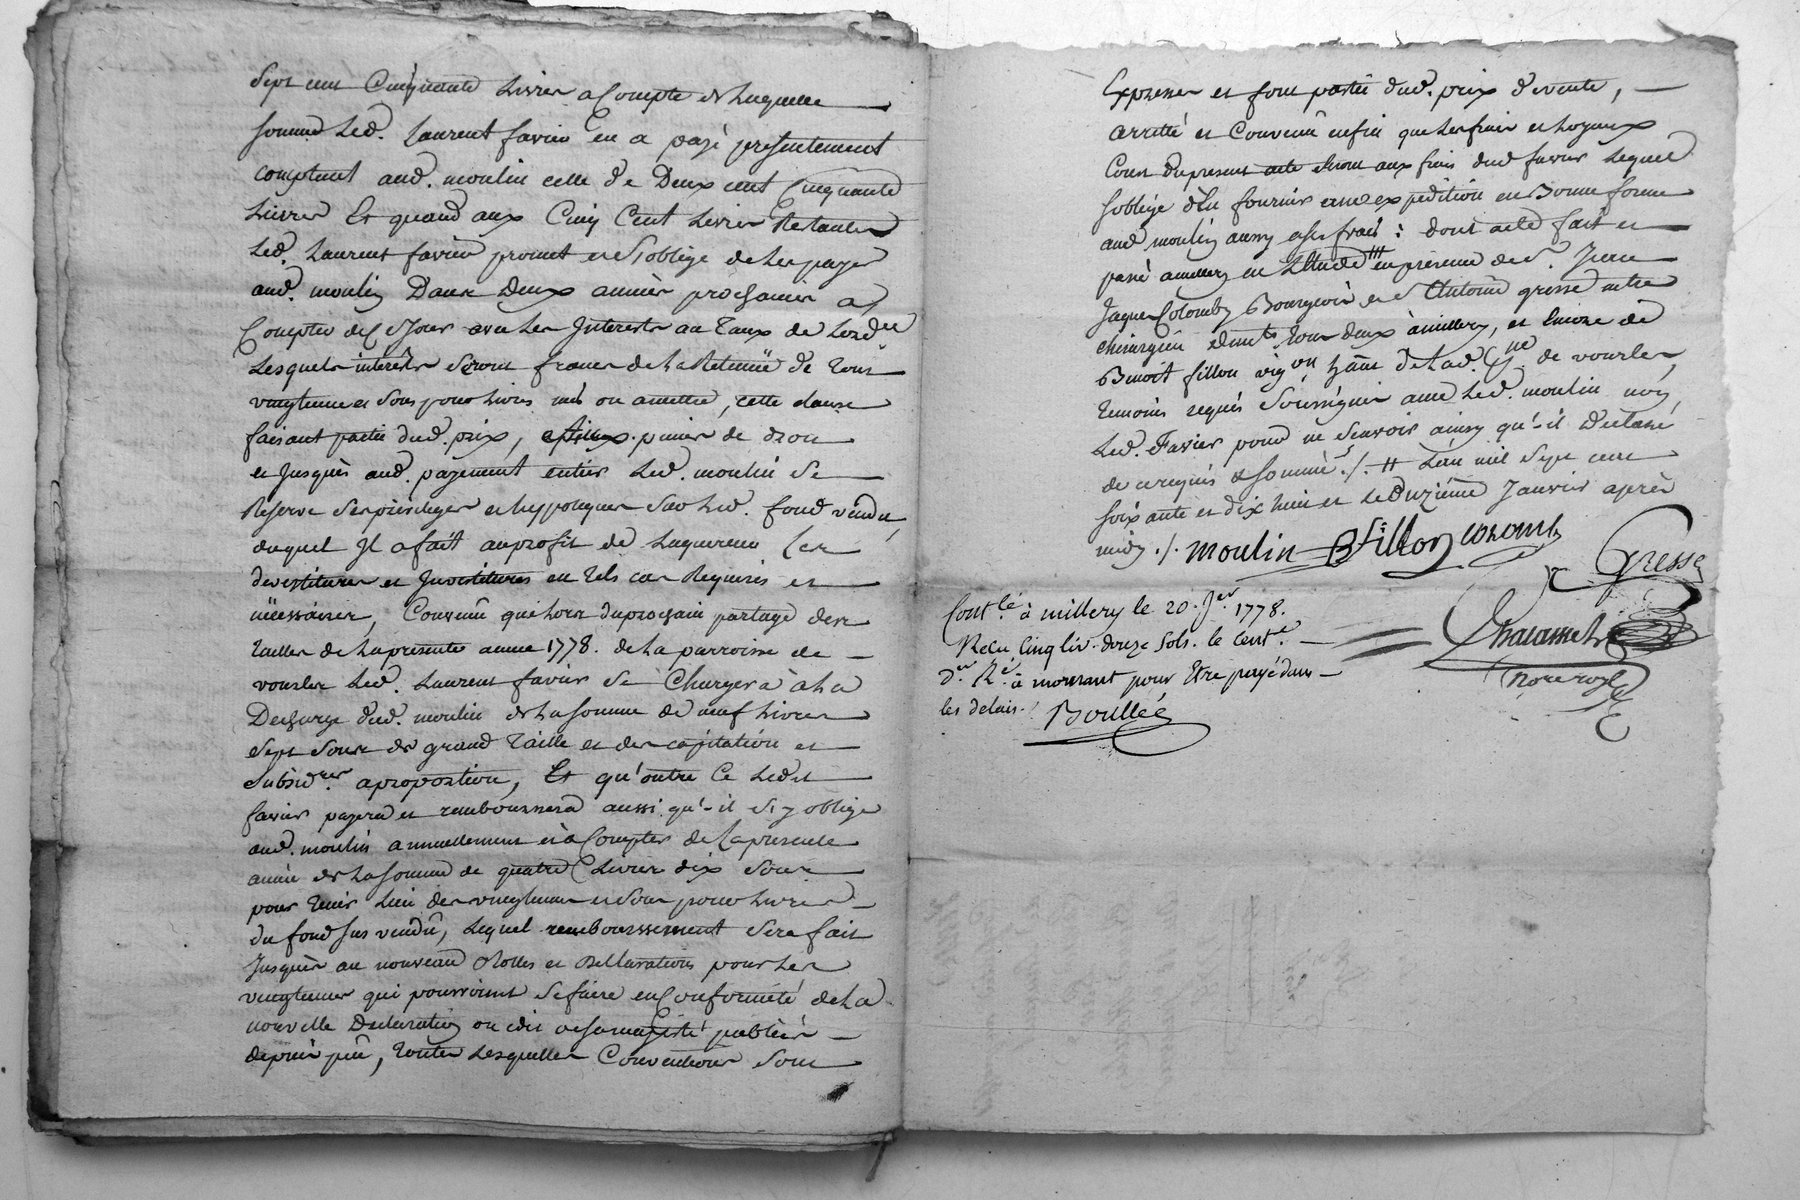 Sept cent Cinquante Livres a Compte de laquelle
somme led. Laurent favier en a payé presentement
comptant aud. moulin celle de Deux cent Cinquante
Livres Et quand aux Cinq Cent Livres Restantes
led. Laurent favier promet et s'oblige de les payer
aud. moulin Dans Deux années prochaines a
Compter de Ce Jour avec les Interests au Taux de l'ord.ce
Lesquels interêts seront francs de la Retenüe de tous
vingtieme et sous pour livres mis ou a mettre, cette clause
faisant partie dud. prix, a peine de droit
et Jusques aud. payement entier led. moulin se
Reserve ses privileges et hyppoteques sur led. fond vendu,
duquel Il a fait au profit de l'aquereur les
devestitures et Investitures en tels cas Requises et
necessaires, Convenu que lors du prochain partage des
Tailles de la presente année 1778. de la parroisse de
vourles led. Laurent favier se Chargera à la
Decharge dud. moulin de la somme de neuf Livres
sept sous de grand Taille et des capitation et
subsid.res a proportion, Et qu'outre Ce ledit
favier payera et remboursera aussi qu'il s'y oblige
aud. moulin annuellement et à Compter de la presente
année de la somme de quatre Livres dix sous
pour tenir lieu des vingtiemes et sous pour Livres
du fond sus vendû, lequel remboursement sera fait
Jusques au nouveau Rolles et Declarations pour les
vingtiemes qui pourroient se faire en Conformité de la
nouvelle Declaration ou edit de sa majesté publiés
depuis peû, toutes lesquelles Conventions sont
Expresses et font partie dud. prix de vente,
arretté et Convenû enfin que les frais et loyaux
Couts du present acte seront aux frais dud favier lequel
s'oblige d'en fournir une expedition en Bonne forme
aud moulin aussy a ses frais : dont acte fait et
passé a millery en l'Etude en presence de S. Jean
Jaques Colomby Bourgeois et S. Antoine gresse maitre
chirurgien demts. tous deux à millery, et Encore de
Benoit fillon vig.on hāant de lad. p.sse de vourles,
temoins requis soussignés avec led. moulin non
led. Favier pour ne sçavoir ainsy qu'il a Declaré
de ce requis & sommé ./. L'an mil sept cent
soixante et dix huit et le duzième Janvier après
midy ./. moulin B fillon colomb
Gresse
Chazaunel
no.re royal
Cont.lé à millery le 20 J.er 1778.
Recu Cinq liv. douze sols. le Cent.e
D.er R.é à mornant pour Etre payé dans
les delais ./. Boullée